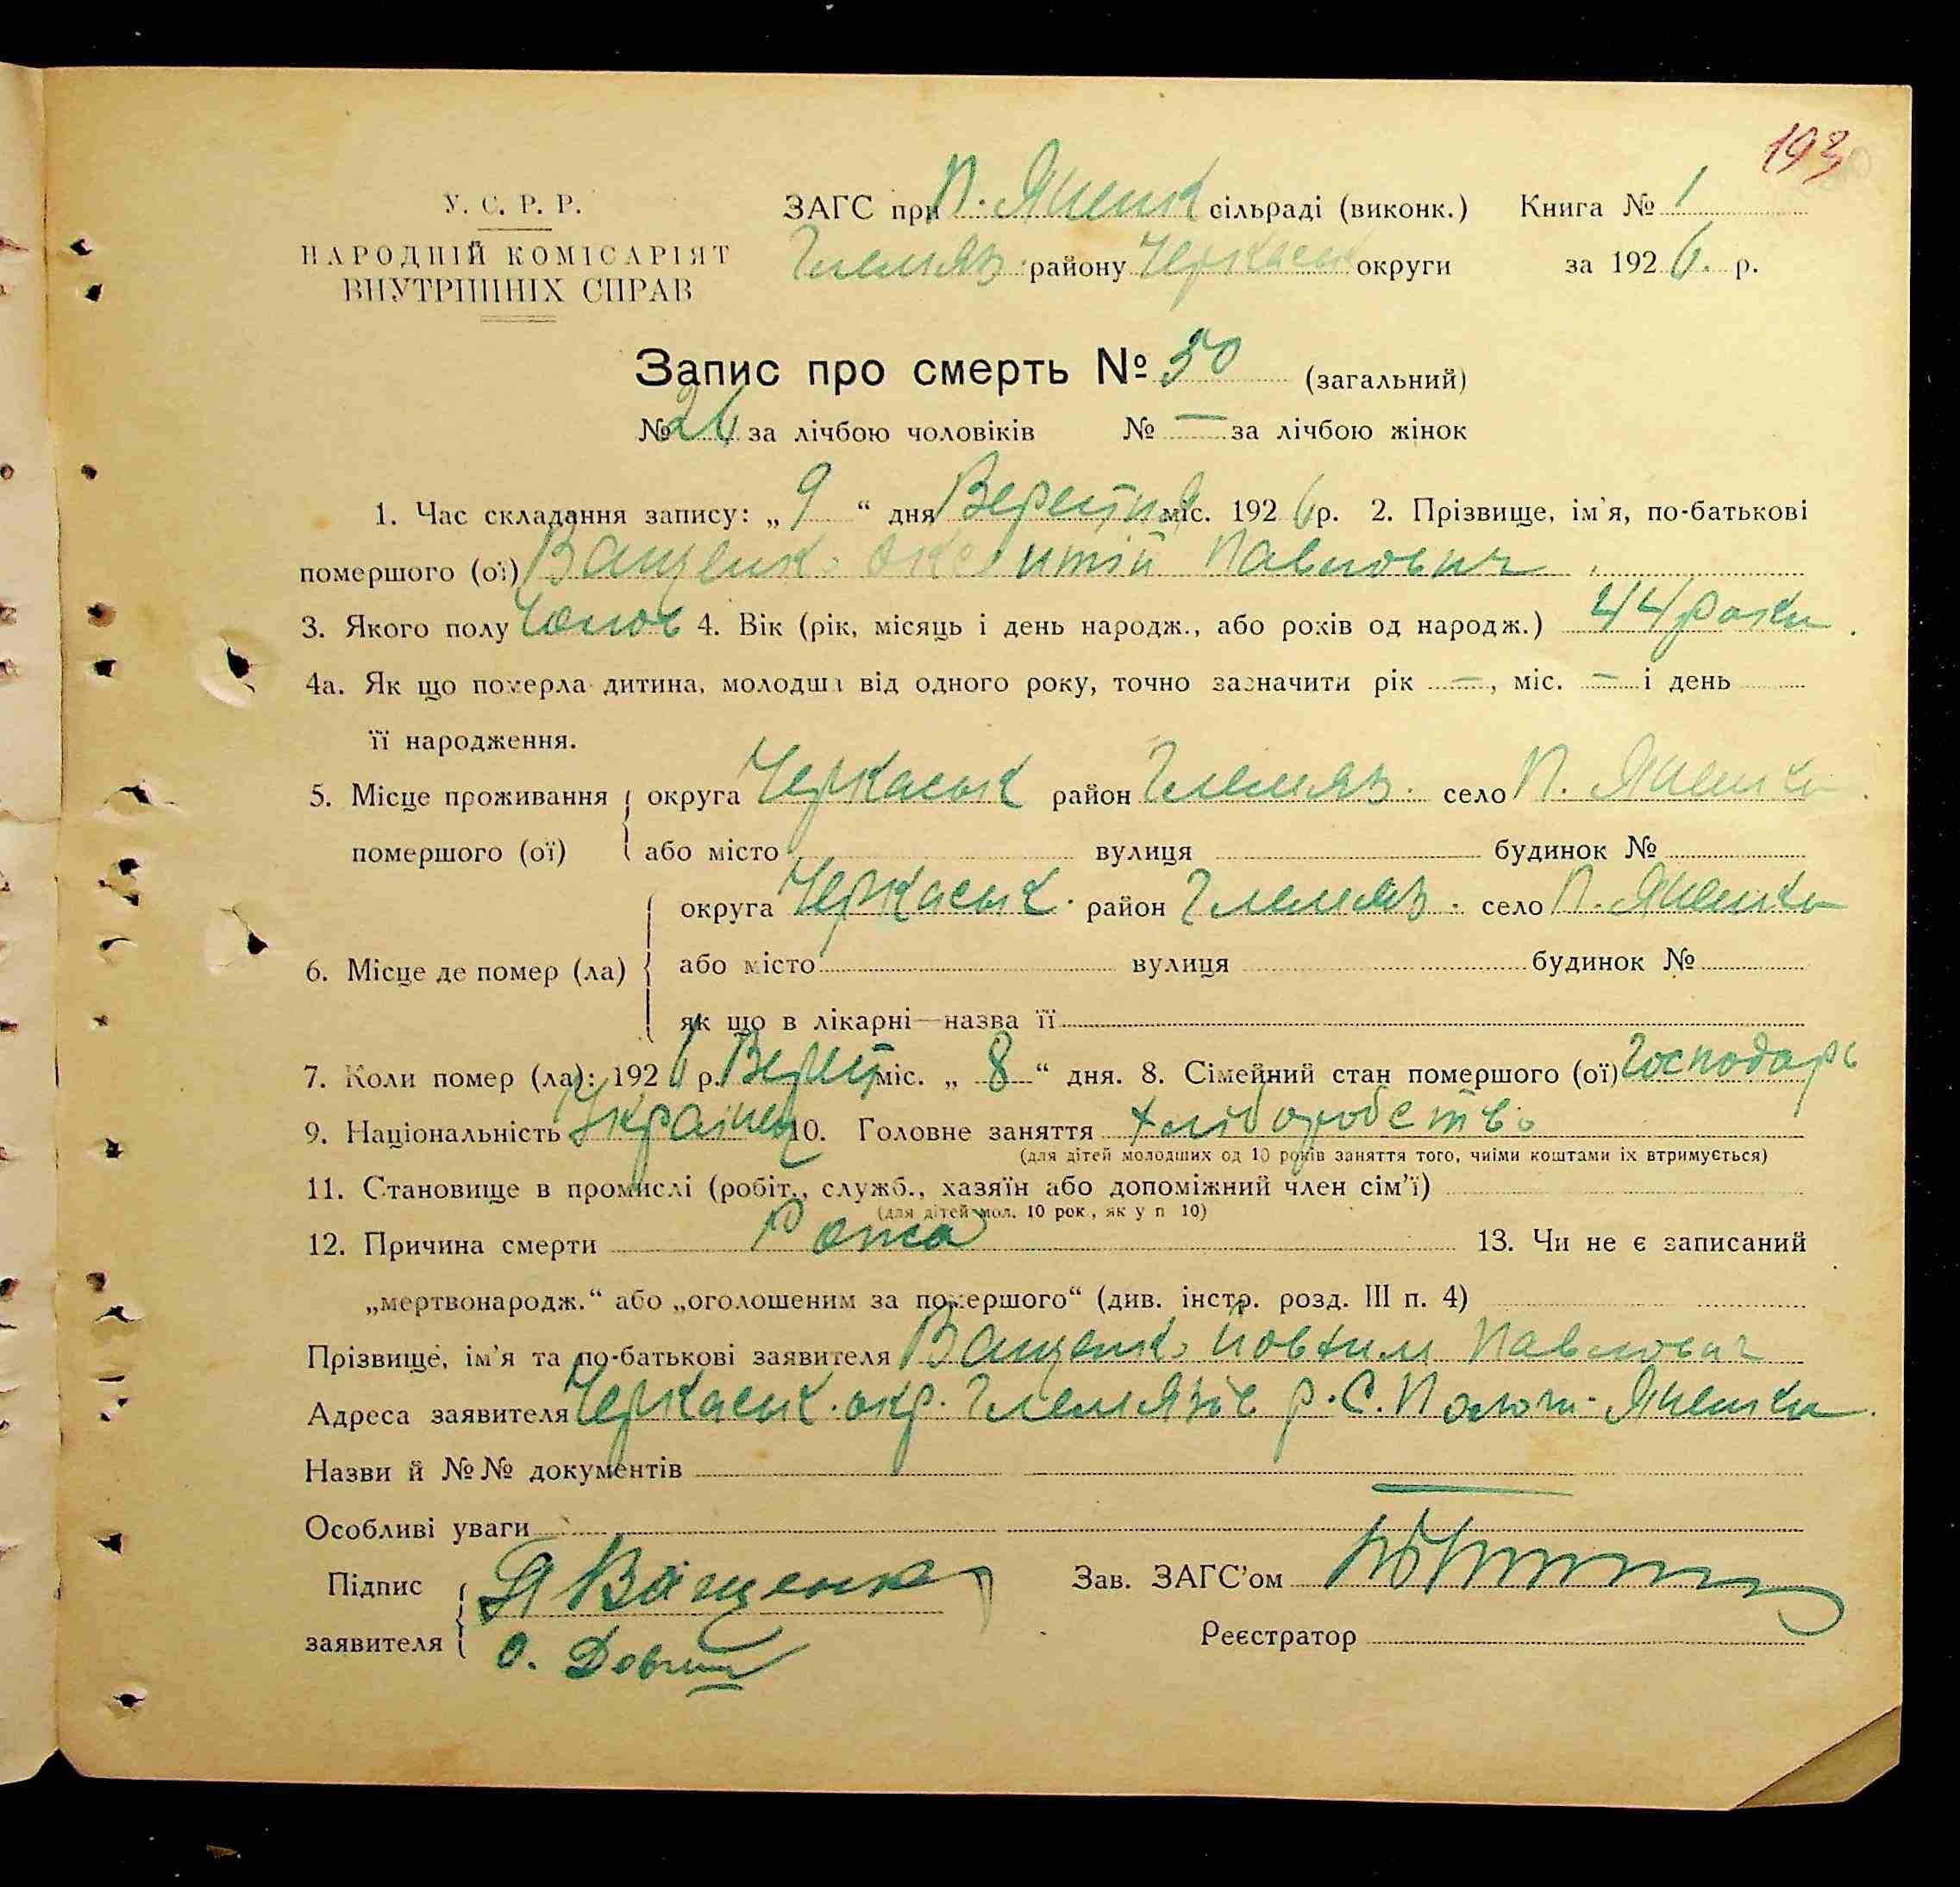 193
У. С. Р. Р.
НАРОДНІЙ КОМІСАРІЯТ
ВНУТРІШНІХ СПРАВ
ЗАГС при П. Яненк сільраді (виконк.) Книга № 1
Гельмяз. району Черкаськ округи за 1926. р.
Запис про смерть № 50 (загальний)
№ 26 за лічбою чоловіків № — за лічбою жінок
1. Час складання запису: „ 9 “ дня Верестня міс. 1926 р. 2. Прізвище, ім'я, по-батькові
помершого (ої) Ващенко Павлович
3. Якого полу Чолов 4. Вік (рік, місяць і день народж., або років од народж.) 44 роки.
4а. Як що померла дитина, молодша від одного року, точно зазначити рік —, міс. — і день
її народження.
5. Місце проживання округа Черкаськ район Гельмяз. село П. Яненки.
помершого (ої) або місто вулиця будинок №
округа Черкаськ. район Гельмяз. село П. Яненки
6. Місце де помер (ла) або місто вулиця будинок №
як що в лікарні—назва її
7. Коли помер (ла): 1926 р. Верест міс. „ 8 “ дня. 8. Сімейний стан помершого (ої) Господарь
9. Національність Українец 10. Головне заняття хліборобство
(для дітей молодших од 10 років заняття того, чиїми коштами їх втримується)
11. Становище в промислі (робіт., служб., хазяїн або допоміжний член сім'ї)
(для дітей мол. 10 рок., як у п 10)
12. Причина смерти 13. Чи не є записаний
„мертвонародж.“ або „оголошеним за помершого“ (див. інстр. розд. III п. 4)
Прізвище, ім'я та по-батькові заявителя Ващенко Йовхим Павлович
Адреса заявителя Черкаськ. окр. Гельмязів р. С. Яненки.
Назви й №№ документів
Особливі уваги
Підпис Я Ващенко Зав. ЗАГС'ом
заявителя О. Реєстратор